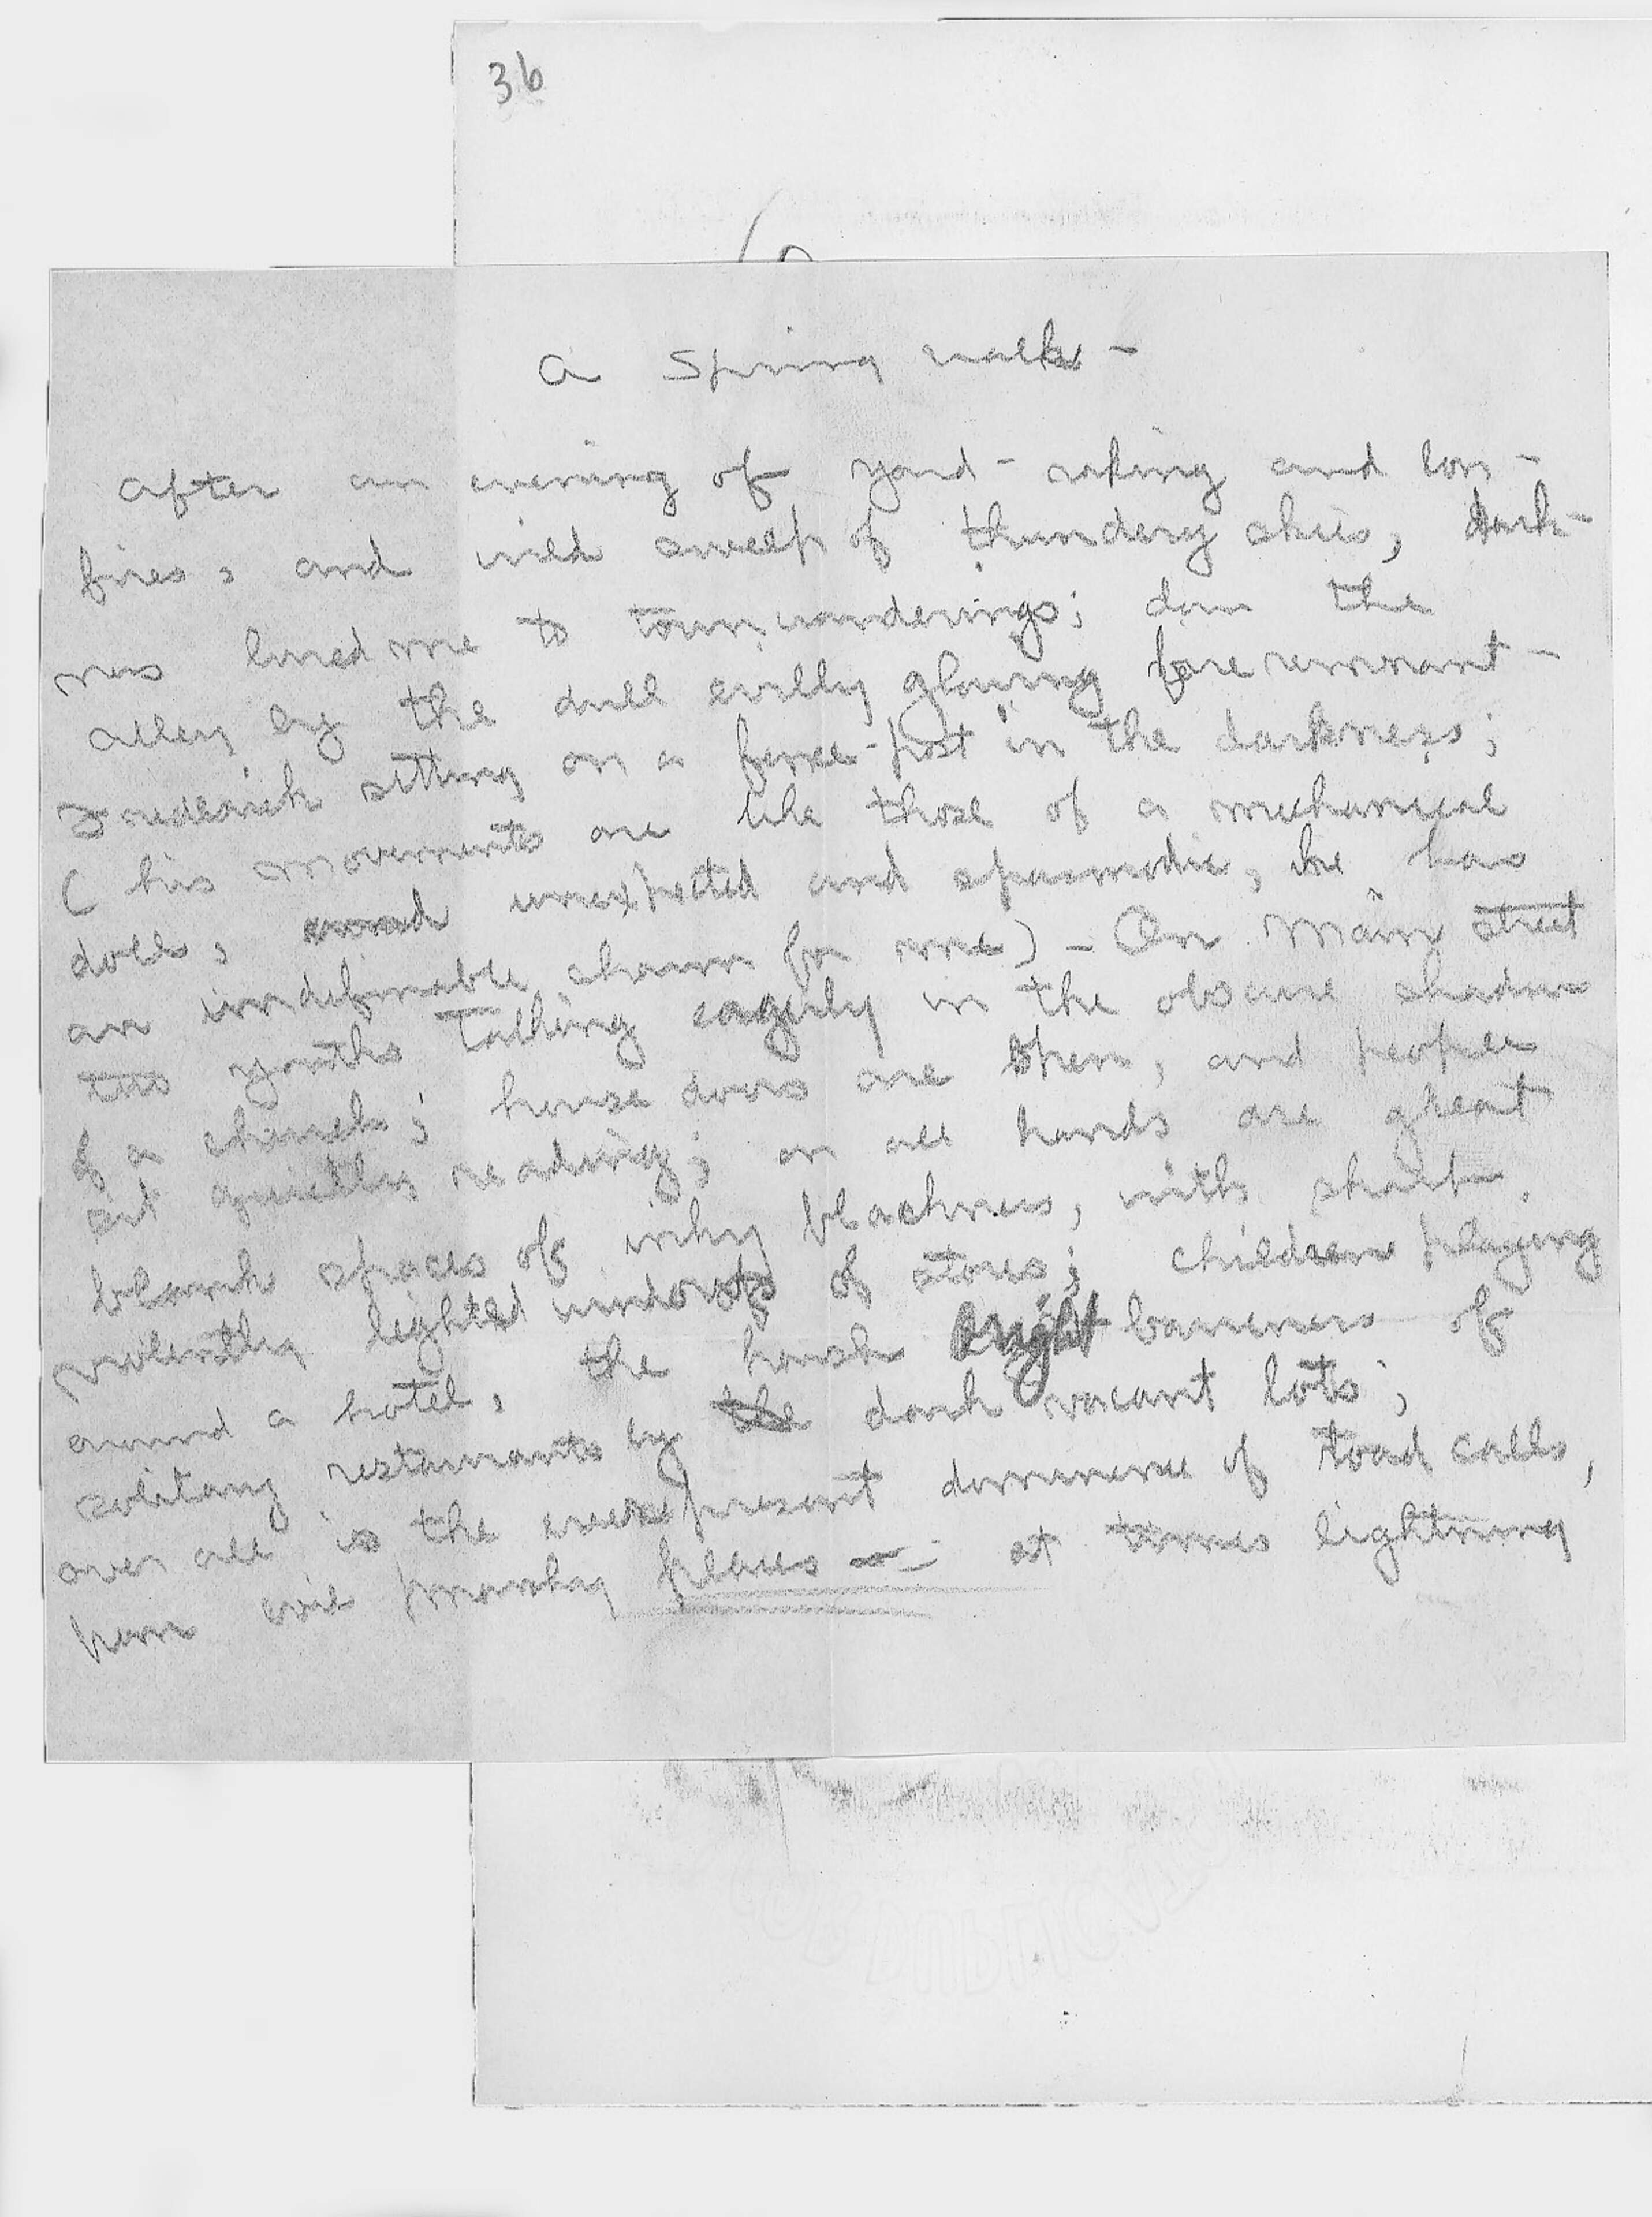 36
A Spring walk –
After an evening of yard-raking and bon-
fires, and wild sweep of thundery skies, dark-
ness lured me to town wanderings; down the
alley by the dull evilly glowing fire remnant –
Frederick sitting on a fence-post in the darkness;
( his movements are like those of a mechanical
doll, unexpected and spasmodic, he has
an indefinable charm for me) – On Main street
two youths talking eagerly in the obscure shadow
of a church; house doors are open, and people
sit quietly reading; on all hands are great
blank spaces of inky blackness, with sharp
violently lighted windows of stores; children playing
around a hotel, the harsh bright barrenness of
solitary restaurants by the dark vacant lots;
over all is the ever present dominence of toad calls,
from evil marshy places – at times lightning